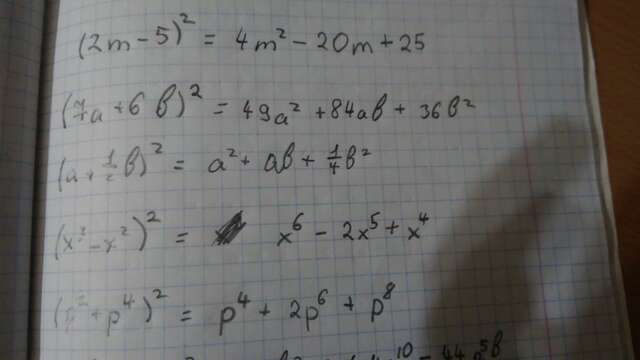 (2m - 5)² = 4m² - 20m + 25
(7a + 6в)² = 49a² + 84aв + 36в²
(a + ½в)² = a² + aв + ¼в²
(x³ - x²)² = x⁶ - 2x⁵ + x⁴
(p² + p⁴)² = p⁴ + 2p⁶ + p⁸